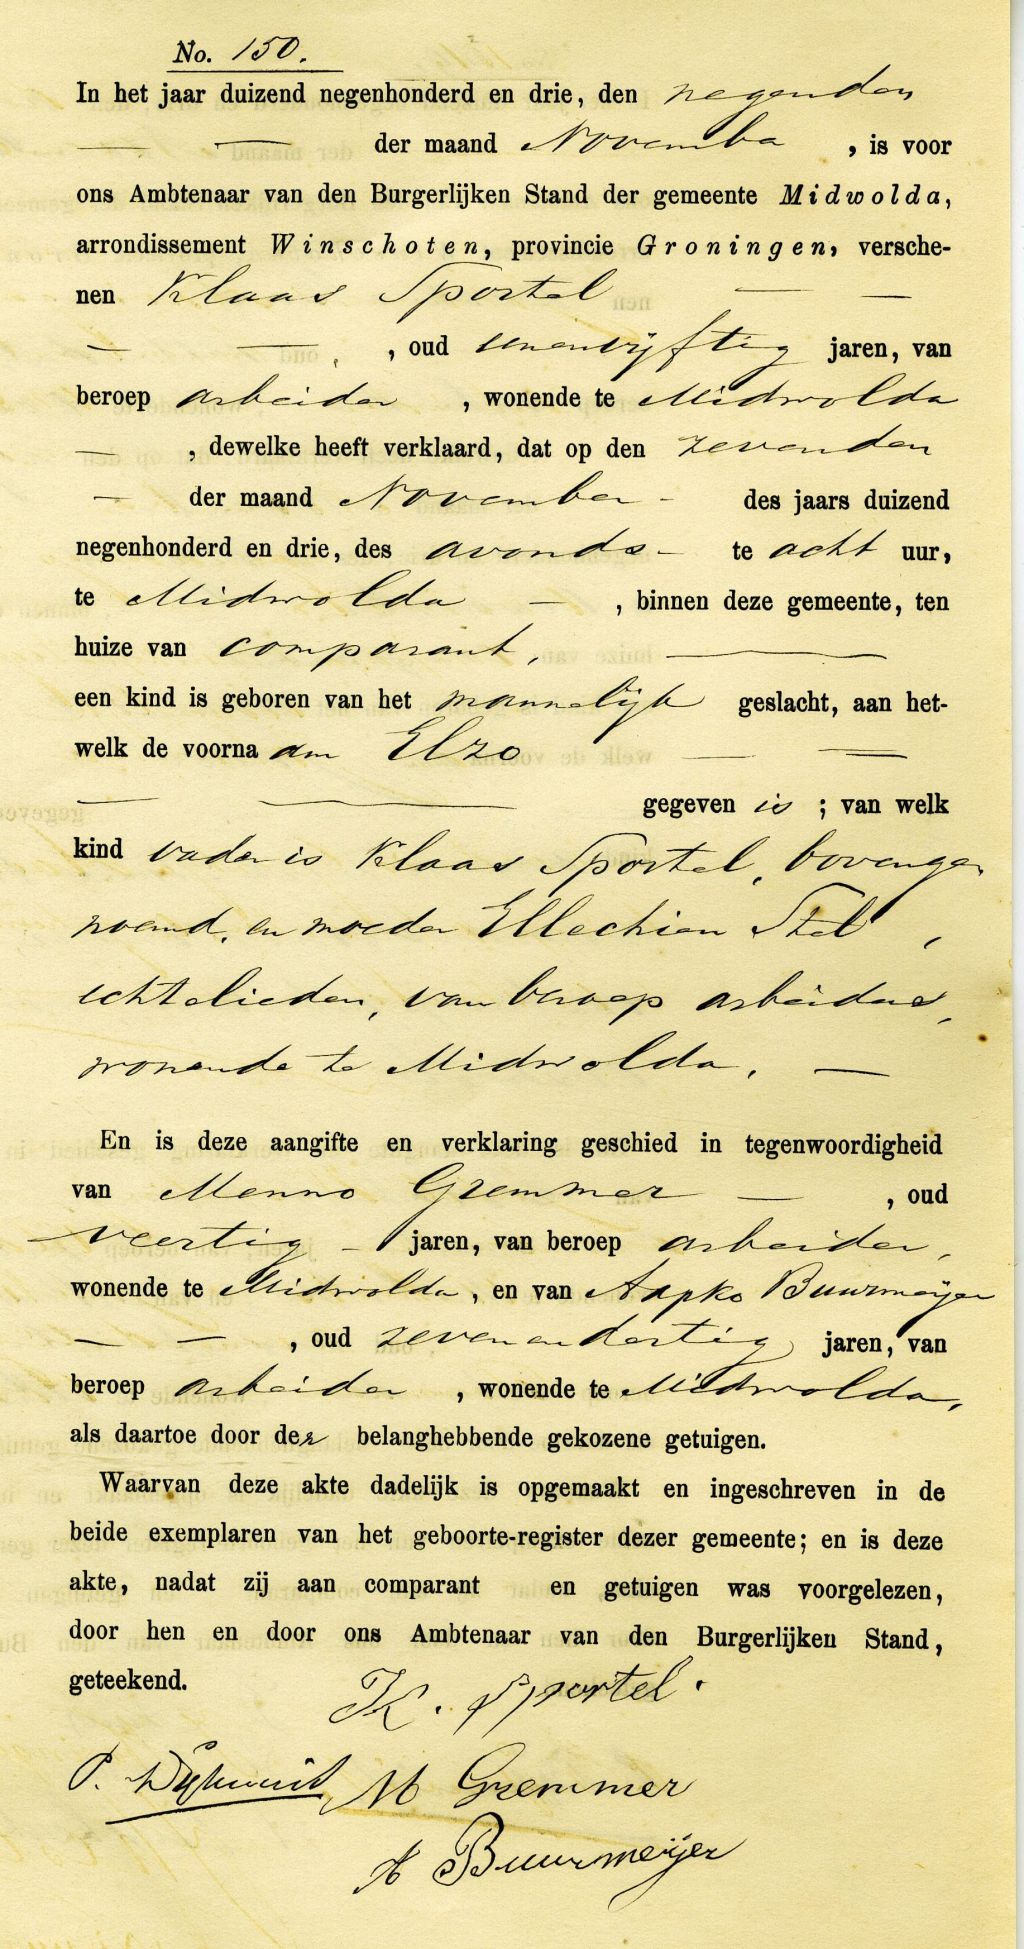 No. 150.
In het jaar duizend negenhonderd en drie, den negenden
der maand November, is voor
ons Ambtenaar van den Burgerlijken Stand der gemeente Midwolda,
arrondissement Winschoten, provincie Groningen, versche-
nen Klaas Sportel
, oud eenenvijftig jaren, van
beroep arbeider, wonende te Midwolda
, dewelke heeft verklaard, dat op den zevenden
der maand November des jaars duizend
negenhonderd en drie, des avonds te acht uur,
te Midwolda, binnen deze gemeente, ten
huize van comparant,
een kind is geboren van het mannelijk geslacht, aan het-
welk de voornaam Elzo
gegeven is; van welk
kind vader is Klaas Sportel, bovenge-
noemd, en moeder Ellechien Stel,
echtelieden, van beroep arbeiders,
wonende te Midwolda.
En is deze aangifte en verklaring geschied in tegenwoordigheid
van Menno Gremmer, oud
veertig jaren, van beroep arbeider,
wonende te Midwolda, en van Aapko Buurmeijer
, oud zevenendertig jaren, van
beroep arbeider, wonende te Midwolda,
als daartoe door der belanghebbende gekozene getuigen.
Waarvan deze akte dadelijk is opgemaakt en ingeschreven in de
beide exemplaren van het geboorte-register dezer gemeente; en is deze
akte, nadat zij aan comparant en getuigen was voorgelezen,
door hen en door ons Ambtenaar van den Burgerlijken Stand,
geteekend.
K. Sportel.
P. M Gremmer
A Buurmeijer